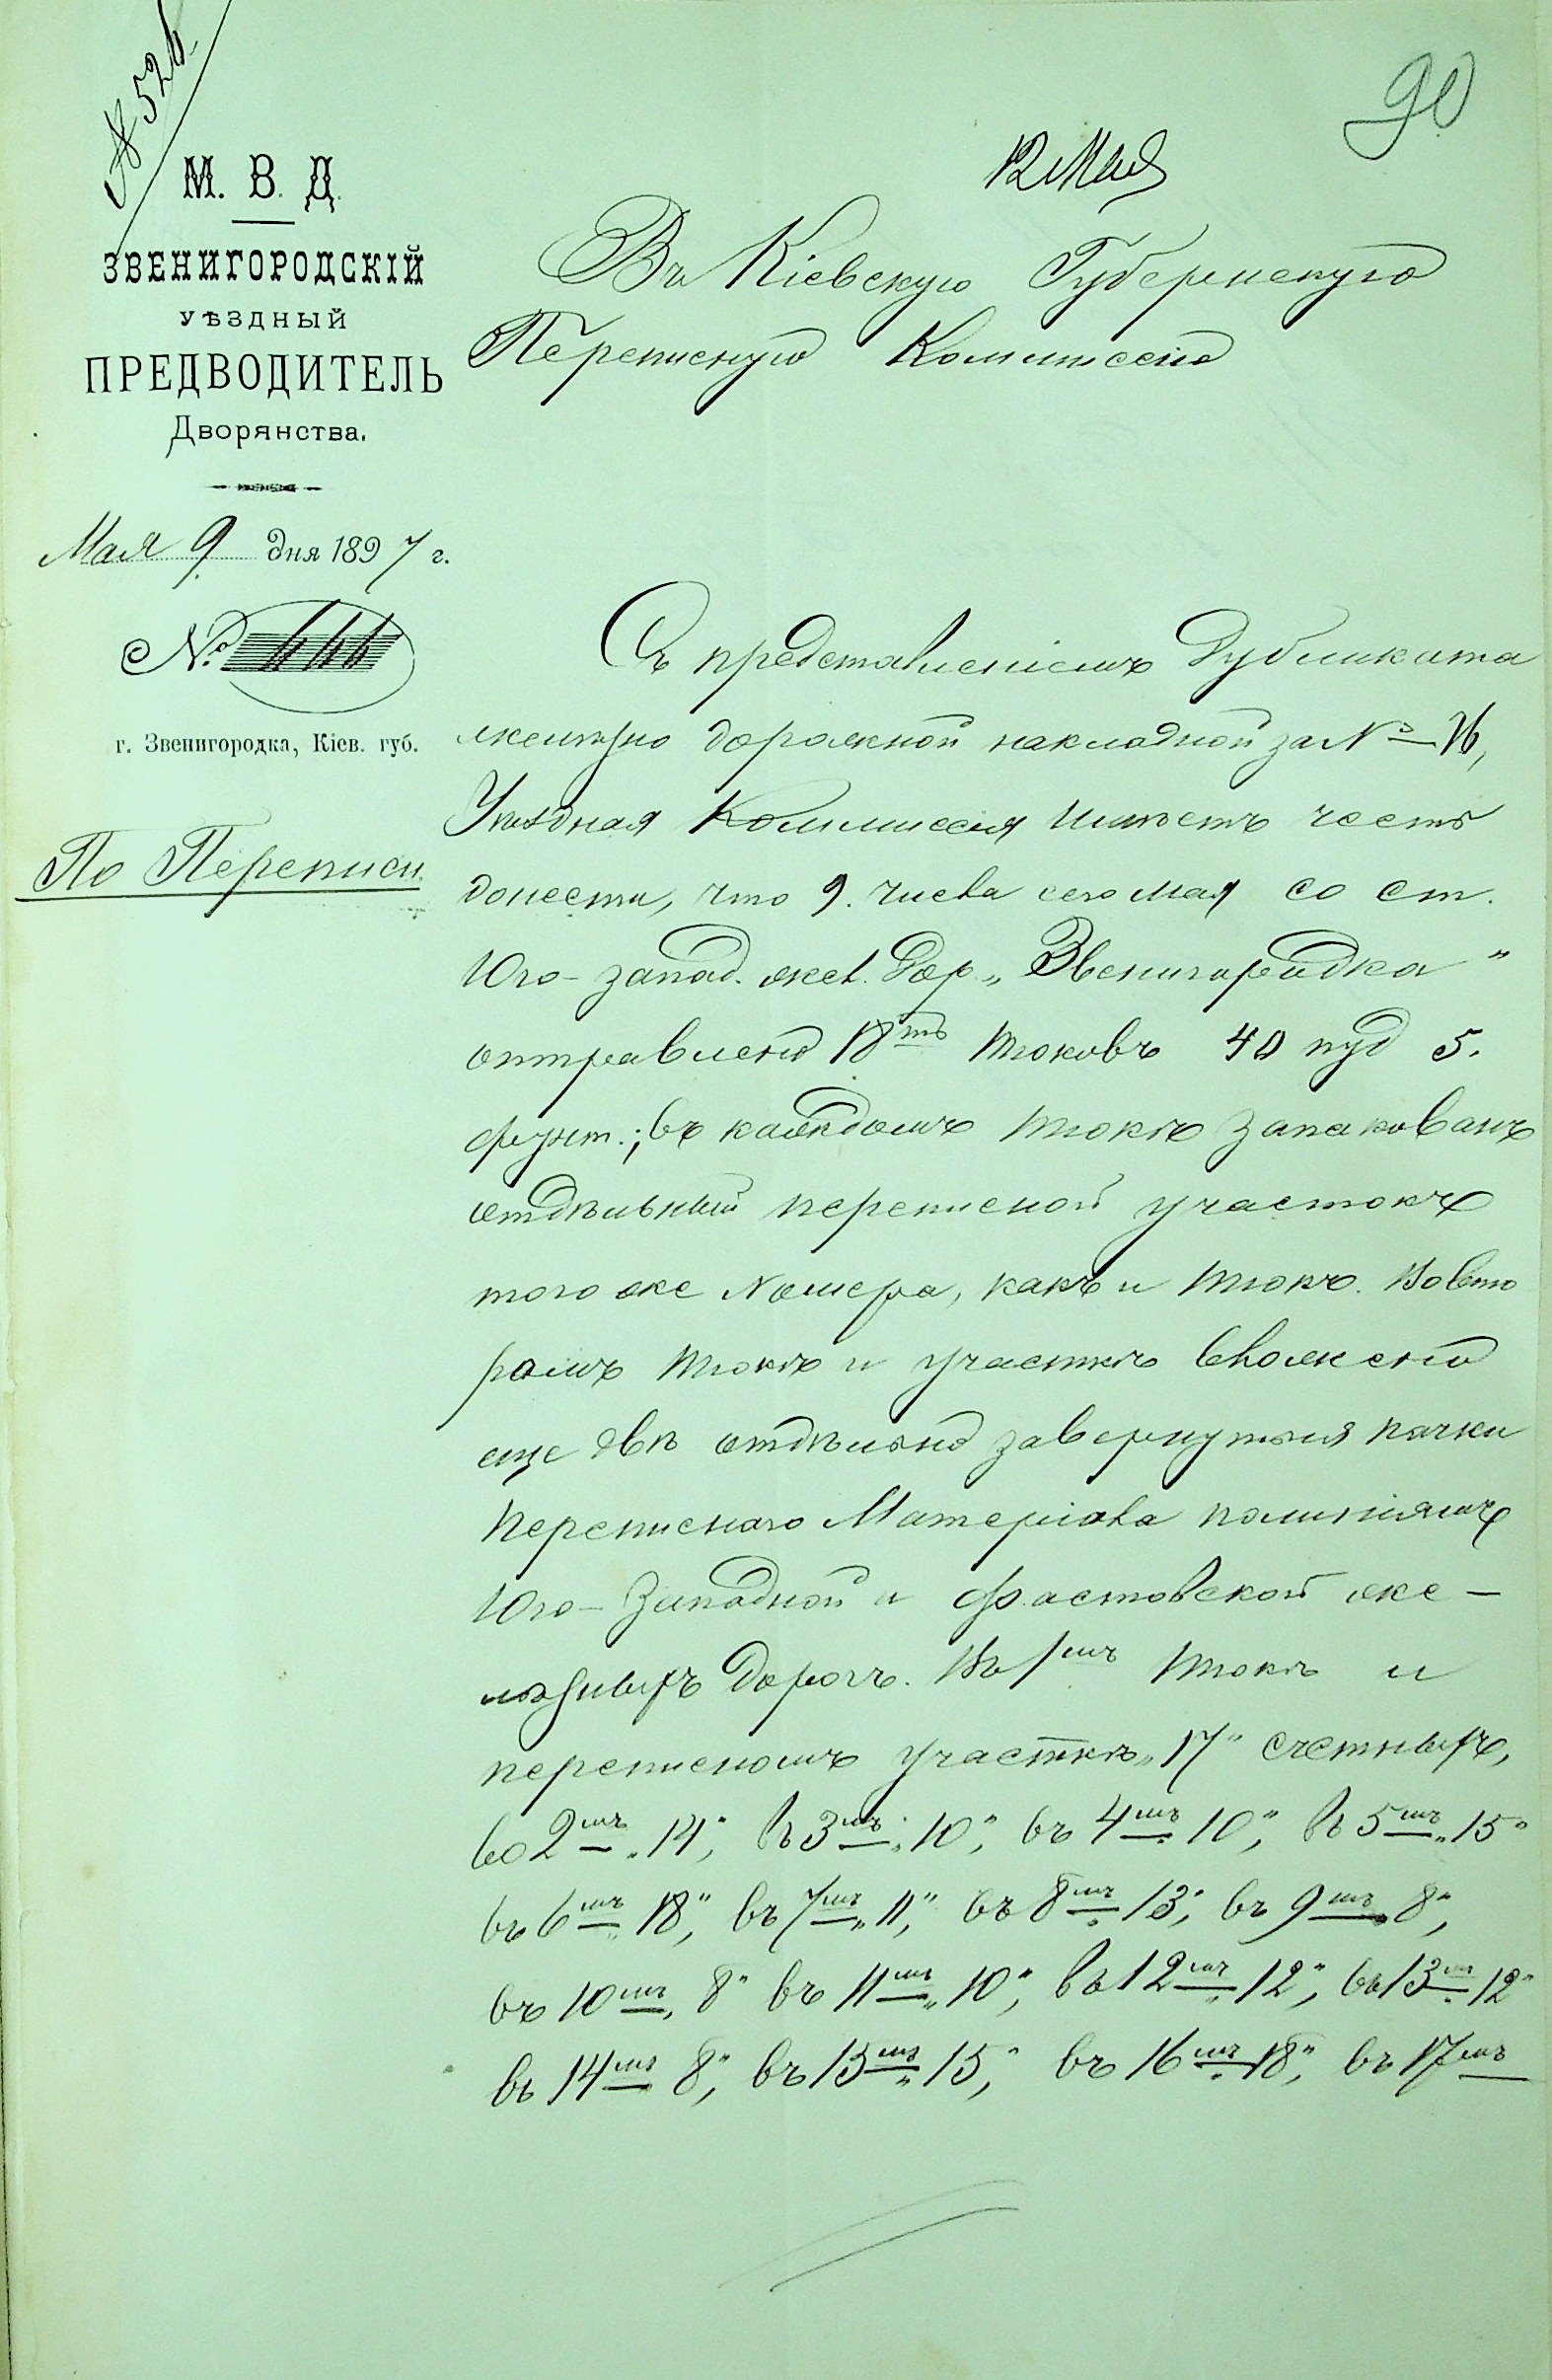 № 526.
90
12 Мая
М. В. Д.
ЗВЕНИГОРОДСКІЙ
УѢЗДНЫЙ
ПРЕДВОДИТЕЛЬ
Дворянства.
Мая 9 дня 1897 г.
№
г. Звенигородка, Кіев. губ.
По Переписи.
Въ Кіевскую Губернскую
Переписную Коммисію
Съ представленіемъ Дубликата
желѣзно дорожной накладной за №
Уѣздная Коммиссія имѣетъ честь
донести, что 9. числа сего Мая со ст.
Юго-запад. жел. Дор. „Звенигородка"
отправлено 18ть тюковъ 40 пуд 5.
фунт.; въ каждомъ тюкѣ запакованъ
отдѣльный переписной участокъ
того же Номера, какъ и тюкъ. Во вто
ромъ тюкѣ и участкѣ вложено
еще двѣ отдѣльно завернутыя пачки
переписнаго Матеріала по линіямъ
Юго-Западной и Фастовской же-
лѣзныхъ дорогъ. Въ 1мъ тюкѣ и
переписномъ участкѣ „17" счетныхъ,
во 2мъ „14", въ 3мъ „10", въ 4мъ „10", въ 5мъ „15"
въ 6мъ „18", въ 7мъ „11", въ 8мъ „13", въ 9мъ „8",
въ 10мъ „8" въ 11мъ „10", въ 12мъ „12", въ 13мъ „12"
въ 14мъ 8", въ 15мъ „15", въ 16мъ „18", въ 17мъ